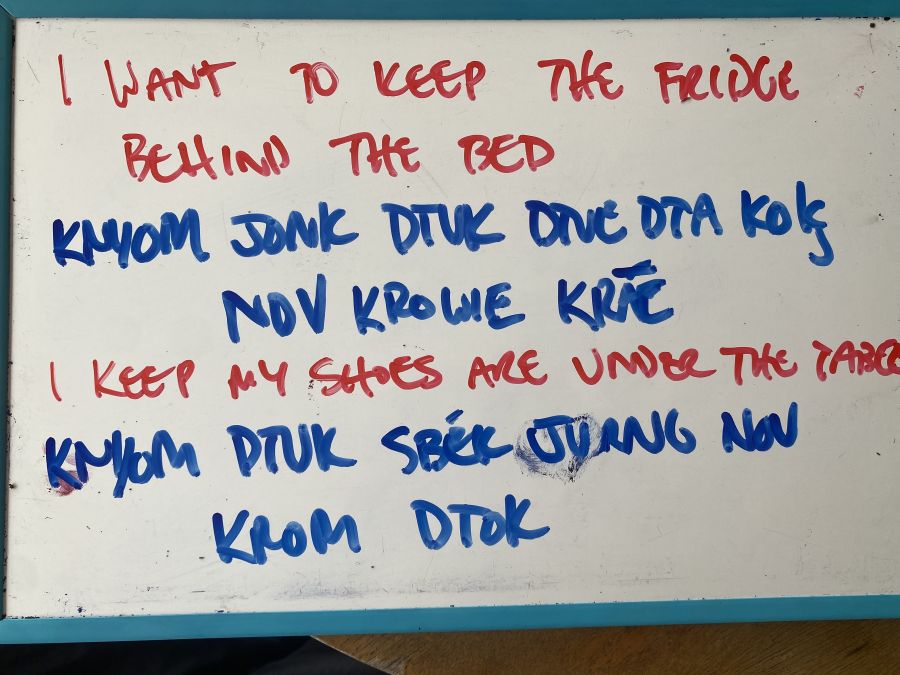 I WANT TO KEEP THE FRIDGE
BEHIND THE BED
KNYOM JONK DTUK DTUE DTA KOK
NOV KROWIE KRĀE
I KEEP MY SHOES ARE UNDER THE TABLE
KNYOM DTUK SBÉK JURNG NOV
KROM DTOK